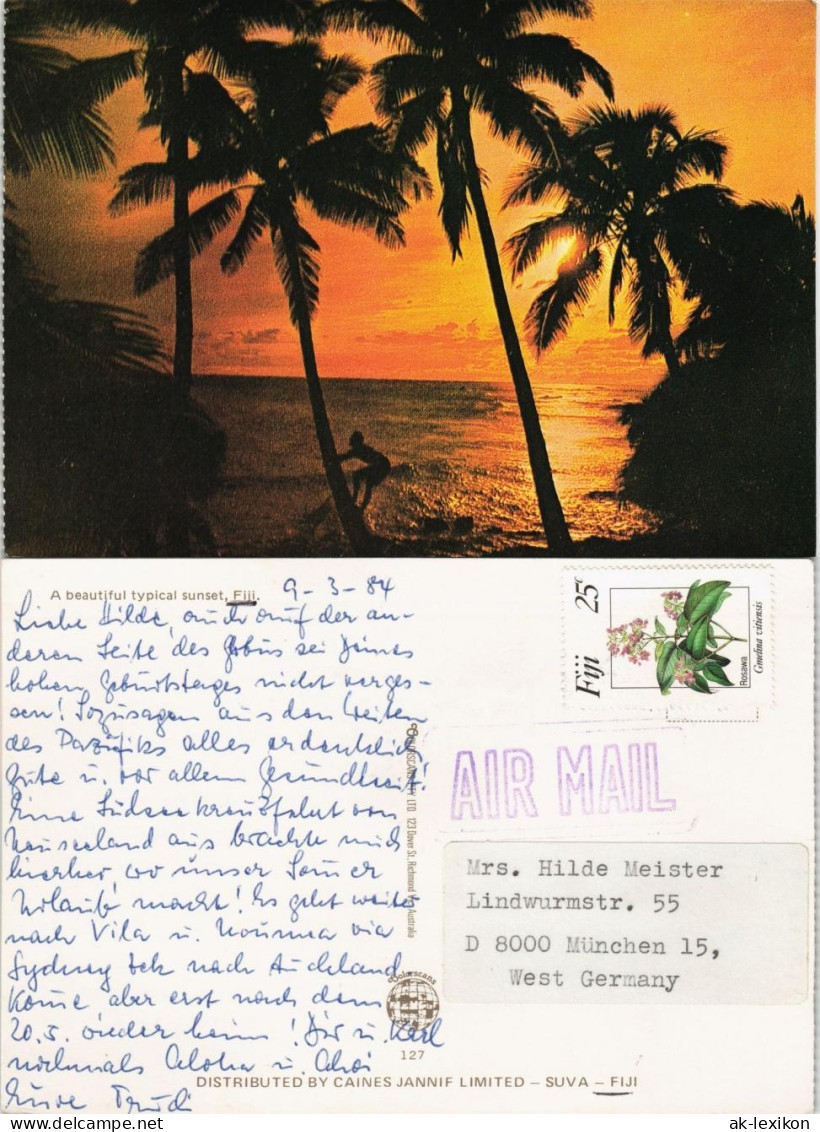 A beautiful typical sunset, Fiji.
9-3-84
Liebe Hilde, auch auf der an-
deren Seite des Globus sei Deines
hohen Geburtstages nicht verges-
sen! Sozusagen aus den Weiten
des Pazifiks alles erdenklich
Gute u. vor allem Gesundheit!
Eine Südseekreuzfahrt von
Neuseeland aus brachte mich
hierher wo unser
Urlaub macht! Es geht weiter
nach Vila u. Noumea via
Sydney zck nach Auckland
Komme aber erst nach dem
20.5. wieder heim! Dir u. Karl
nochmals Aloha u. Ahoi
Eure Trudi
COLORSCANS PTY. LTD. 123 Dover St. Richmond Vic. Australia
Colorscans
127
DISTRIBUTED BY CAINES JANNIF LIMITED – SUVA – FIJI
Fiji 25c
Rosawa
Gmelina vitiensis
AIR MAIL
Mrs. Hilde Meister
Lindwurmstr. 55
D 8000 München 15,
West Germany
ak-lexikon